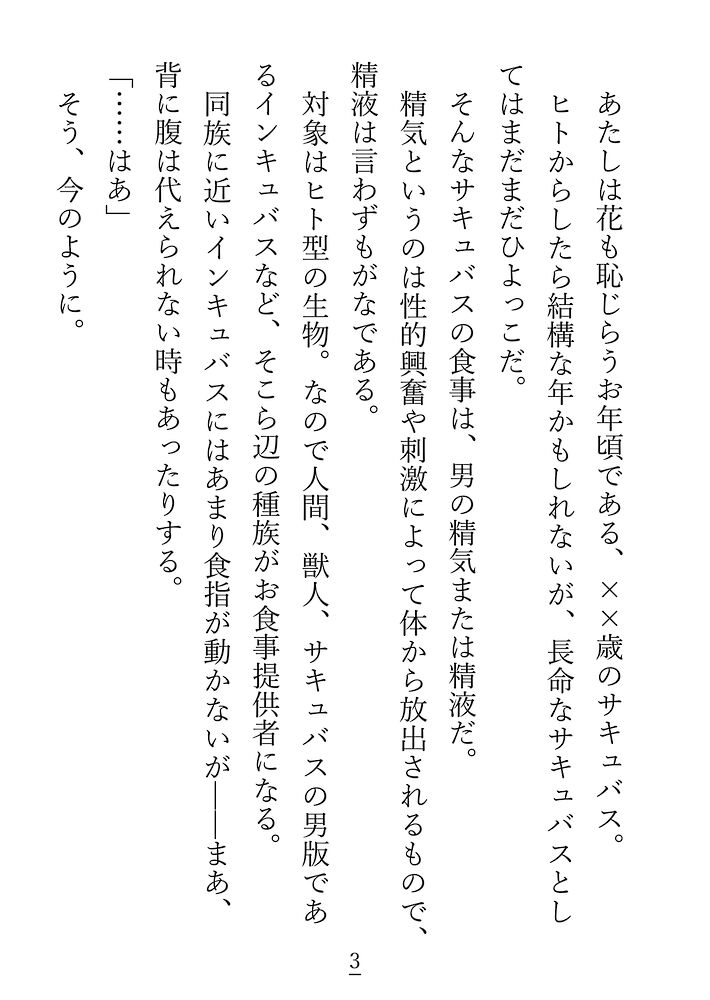 あたしは花も恥じらうお年頃である、××歳のサキュバス。
ヒトからしたら結構な年かもしれないが、長命なサキュバスとし
てはまだまだひよっこだ。
そんなサキュバスの食事は、男の精気または精液だ。
精気というのは性的興奮や刺激によって体から放出されるもので、
精液は言わずもがなである。
対象はヒト型の生物。なので人間、獣人、サキュバスの男版であ
るインキュバスなど、そこら辺の種族がお食事提供者になる。
同族に近いインキュバスにはあまり食指が動かないが――まあ、
背に腹は代えられない時もあったりする。
「……はあ」
そう、今のように。
3